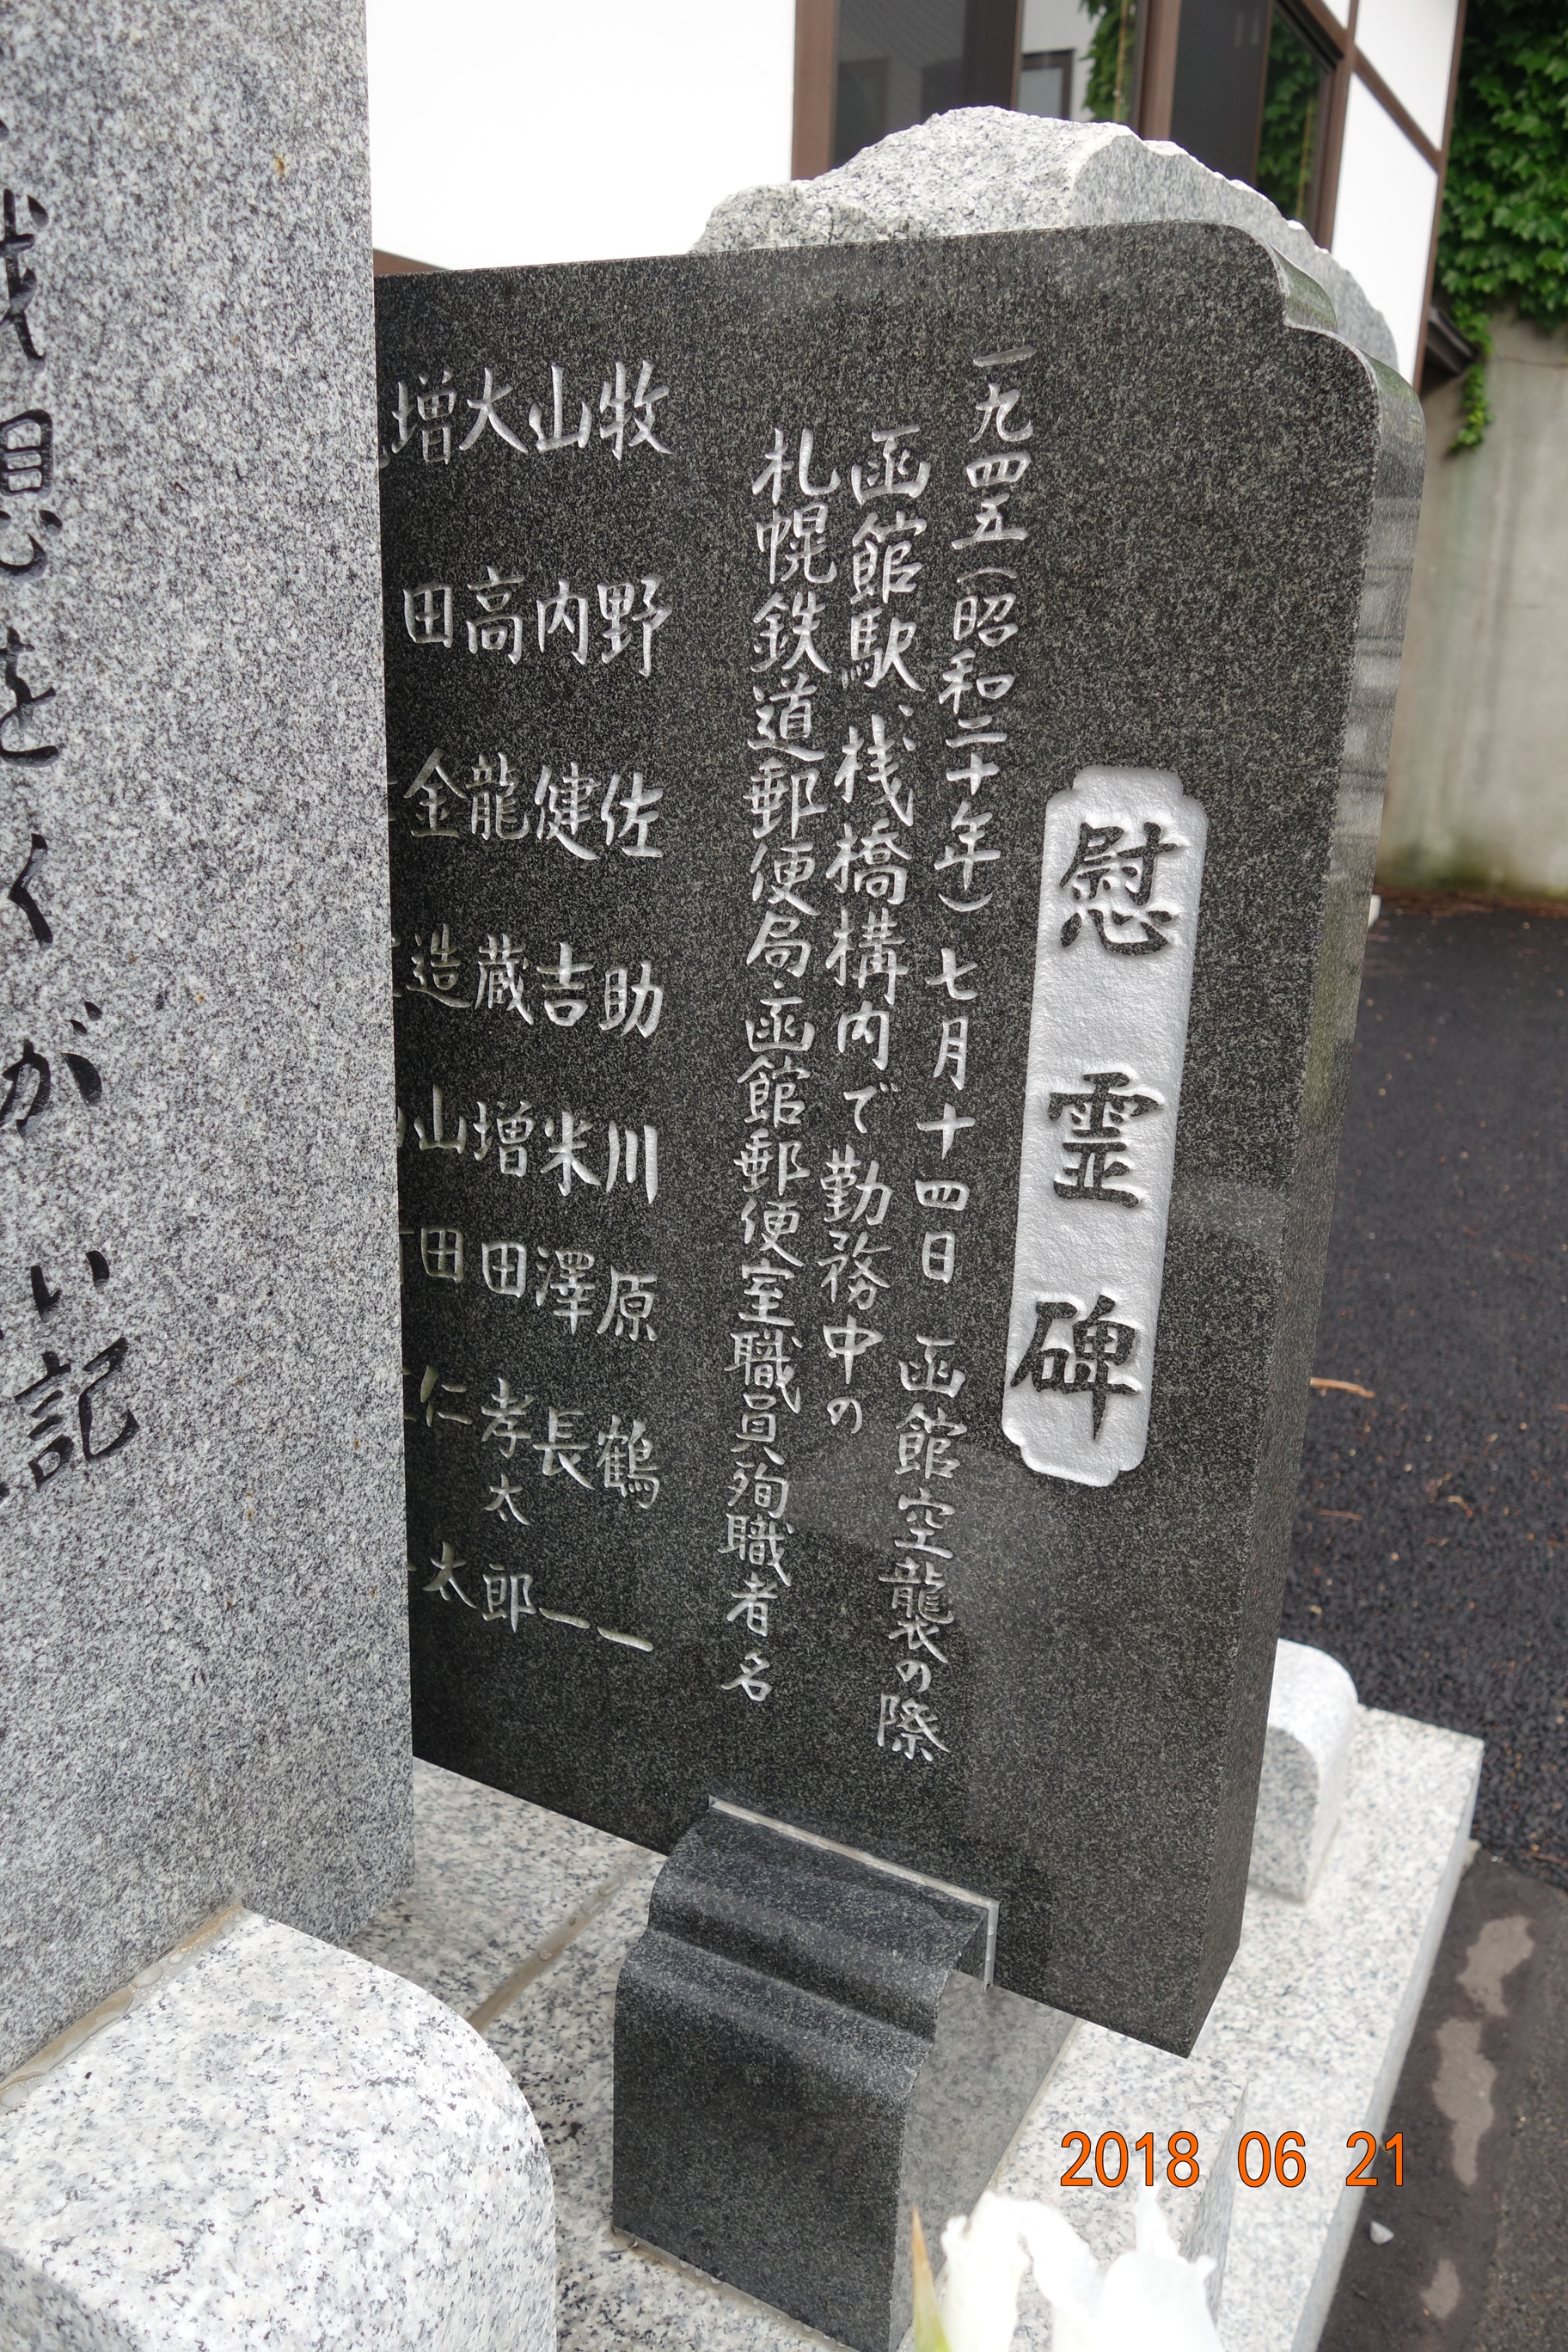 慰霊碑
一九四五(昭和二十年)七月十四日 函館空襲の際
函館駅、桟橋構内で勤務中の
札幌鉄道郵便局・函館郵便室職員殉職者名
牧野佐助 川原鶴一
山内健吉 米澤長一
大高龍蔵 増田孝太郎
増田金造 山田仁太
想をくがい記
2018 06 21